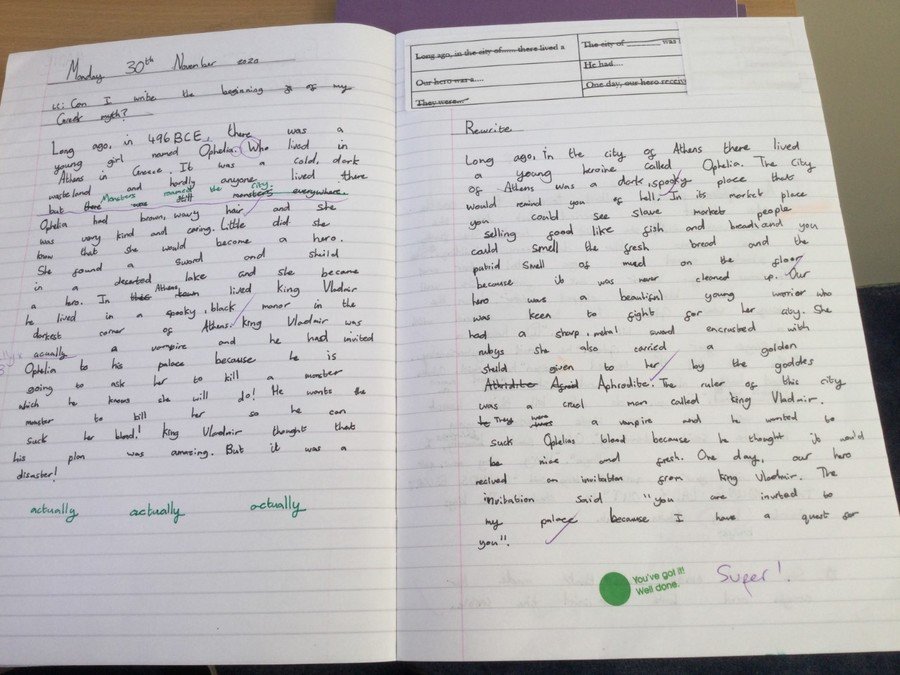 Monday 30th November 2020
LC: Can I write the beginning of my
Greek myth?
Long ago, in 496 BCE, there was a
young girl named Ophelia. Who lived in
Athens in Greece. It was a cold, dark
wasteland and hardly anyone lived there
Monsters roamed the city.
but there was still monsters everywhere.
Ophelia had brown, wavy hair and she
was very kind and caring. Little did she
know that she would become a hero.
She found a sword and sheild
in a deserted lake and she became
a hero. In this town Athens lived King Vladmir
he lived in a spooky, black manor in the
darkest corner of Athens. King Vladmir was
actually a vampire and he had invited
Ophelia to his palace because he is
going to ask her to kill a monster
which he knows she will do! He wants the
monster to kill her so he can
suck her blood! King Vladmir thought that
his plan was amazing. But it was a
disaster!
actually actually actually
Long ago, in the city of...... there lived a
The city of ________ was
Our hero was a....
He had....
They were...
One day, our hero
Rewrite
Long ago, in the city of Athens there lived
a young heroine called Ophelia. The city
of Athens was a dark, spooky place that
would remind you of hell. In its market place
you could see slave market people
selling food like fish and bread and you
could smell the fresh bread and the
putrid smell of mud on the floor
because it was never cleaned up. Our
hero was a beautiful young worrior who
was keen to fight for her city. She
had a sharp, metal sword encrusted with
rubys she also carried a golden
sheild given to her by the goddes
Aphrodite. The ruler of this city
was a cruel man called King Vladmir.
he They were a vampire and he wanted to
suck Ophelias blood because he thought it would
be nice and fresh. One day, our hero
recived an invitation from King Vladmir. The
invitation said "you are invited to
my palace because I have a quest for
you".
You've got it!
Well done.
Super!